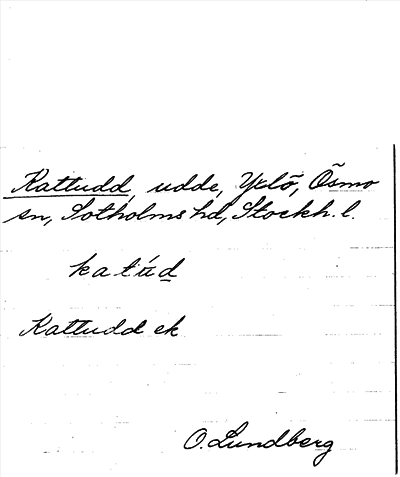 Kattudd, udde, Yxlö, Ösmo
sn, Sotholms hd, Stockh. l.
katúd
Kattudd ek
O. Lundberg